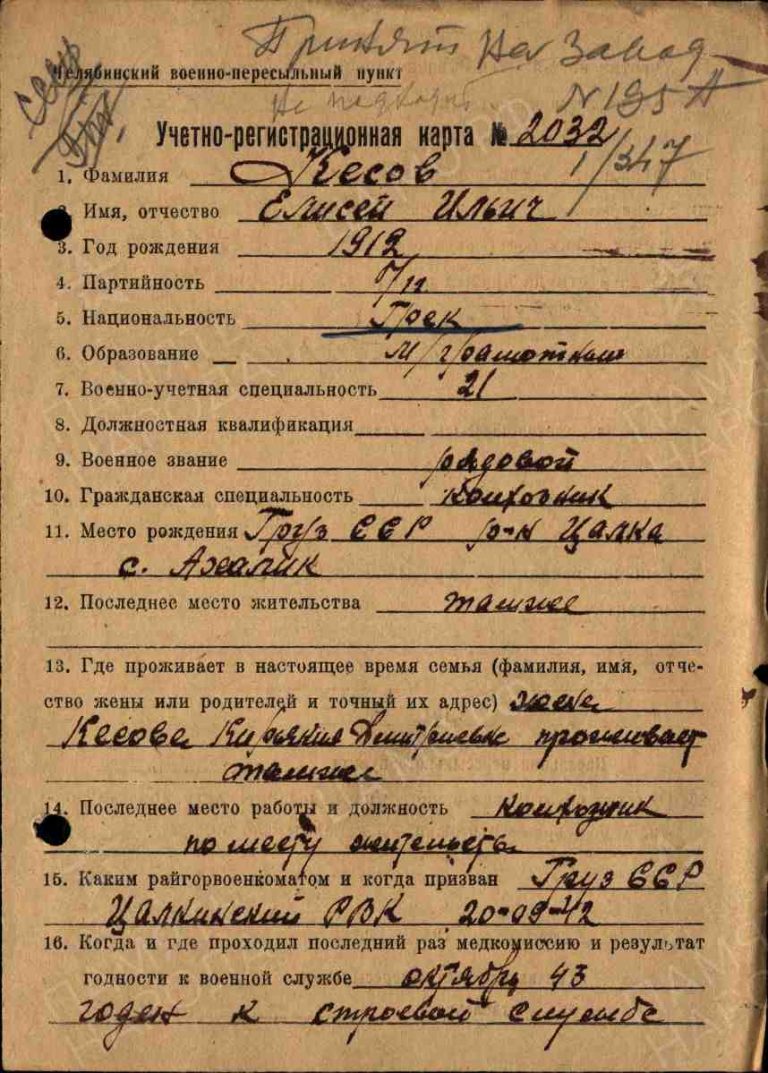 Принят на завод
Челябинский военно-пересыльный пункт
N 195 А
Учетно-регистрационная карта № 2032
1/347
1. Фамилия Кесов
2. Имя, отчество Елисей Ильич
3. Год рождения 1912
4. Партийность б/п
5. Национальность Грек
6. Образование м/грамотный
7. Военно-учетная специальность 21
8. Должностная квалификация
9. Военное звание рядовой
10. Гражданская специальность колхозник
11. Место рождения Груз ССР р-н Цалка
с.
12. Последнее место жительства там же
13. Где проживает в настоящее время семья (фамилия, имя, отче-
ство жены или родителей и точный их адрес) жена
Кесова Дмитриевна проживает
там же
14. Последнее место работы и должность колхозник
по месту жительства
15. Каким райгорвоенкоматом и когда призван Груз ССР
Цалкинский РВК 20-09-42
16. Когда и где проходил последний раз медкомиссию и результат
годности к военной службе октябрь 43
годен к строевой службе